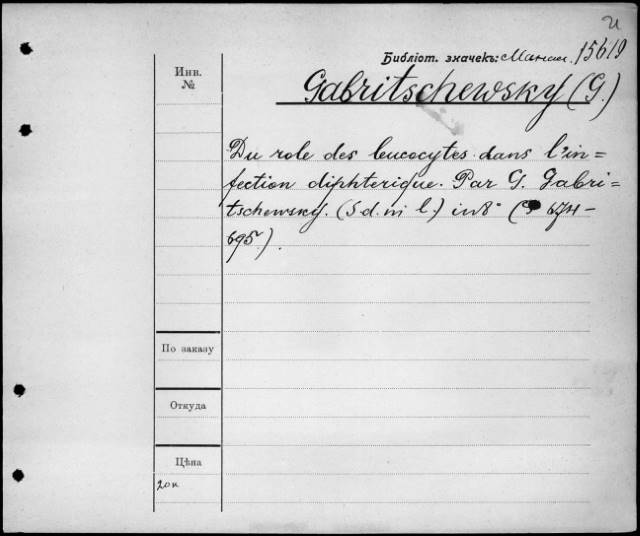 Библiот. значекъ: 15619
Инв.
№
Gabritschewsky (G.)
Du role des leucocytes dans l'in=
fection diphterique. Par G. Gabri-
tschewsky. (S d. ni l.) in 8° ( 674-
695.).
По заказу
Откуда
Цѣна
20 к